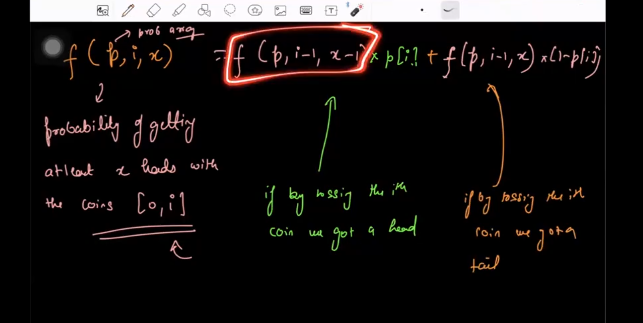 prob array
f (p, i, x) = f (p, i-1, x-1) × p[i] + f(p, i-1, x) × (1-p[i])
probability of getting
atleast x heads with
the coins [0, i]
if by tossing the ith
coin we got a head
if by tossing the ith
coin we got a
tail